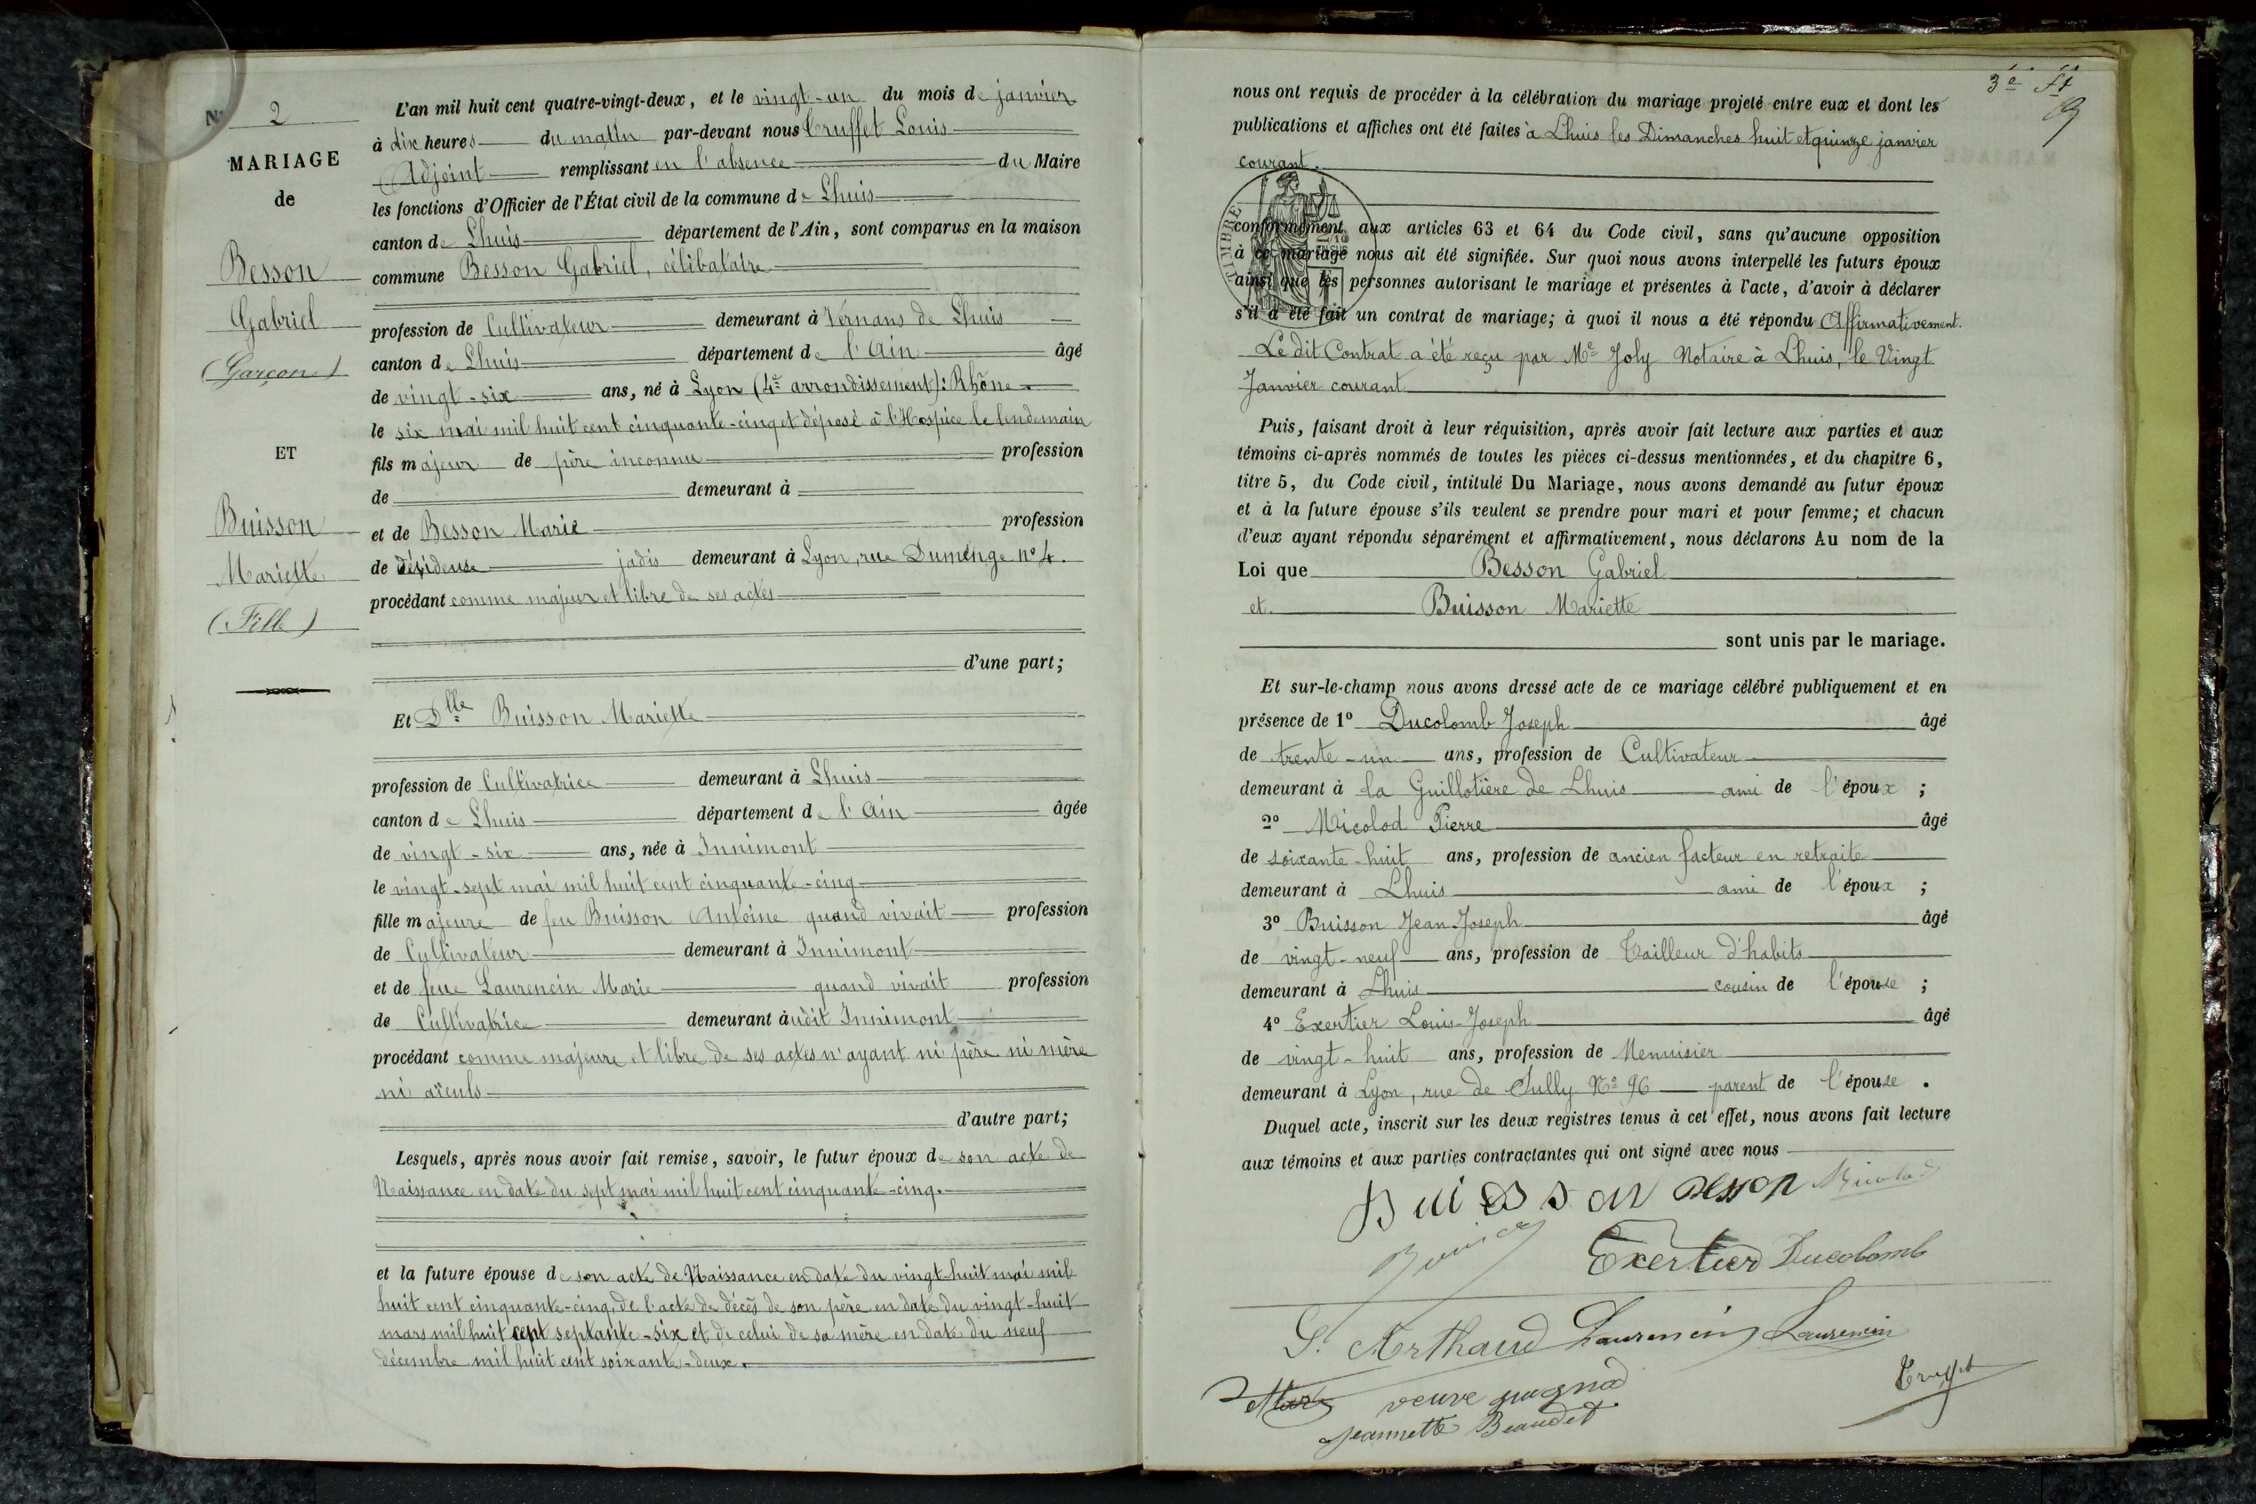 N° 2
MARIAGE
de
Besson
Gabriel
(Garçon)
ET
Buisson
Mariette
(Fille)
L'an mil huit cent quatre-vingt-deux, et le vingt-un du mois de janvier
à dix heures du matin par-devant nous Truffet Louis
Adjoint remplissant en l'absence du Maire
les fonctions d'Officier de l'État civil de la commune de Lhuis
canton de Lhuis département de l'Ain, sont comparus en la maison
commune Besson Gabriel, célibataire
profession de Cultivateur demeurant à Vernans de Lhuis
canton de Lhuis département de l'Ain âgé
de vingt-six ans, né à Lyon (4e arrondissement): Rhône
le six mai mil huit cent cinquante-cinq et déposé à l'Hospice le lendemain
fils majeur de père inconnu profession
de demeurant à
et de Besson Marie profession
de dévideuse jadis demeurant à Lyon, rue Dumenge n° 4.
procédant comme majeur et libre de ses actes
d'une part;
Et Dlle Buisson Mariette
profession de Cultivatrice demeurant à Lhuis
canton de Lhuis département de l'Ain âgée
de vingt-six ans, née à Innimont
le vingt-sept mai mil huit cent cinquante-cinq
fille majeure de feu Buisson Antoine quand vivait profession
de Cultivateur demeurant à Innimont
et de feue Laurencin Marie quand vivait profession
de Cultivatrice demeurant àudit Innimont
procédant comme majeure et libre de ses actes n'ayant ni père ni mère
ni aïeuls
d'autre part;
Lesquels, après nous avoir fait remise, savoir, le futur époux de son acte de
Naissance en date du sept mai mil huit cent cinquante-cinq.
et la future épouse de son acte de Naissance en date du vingt-huit mai mil
huit cent cinquante-cinq, de l'acte de décès de son père en date du vingt-huit
mars mil huit cent septante-six et de celui de sa mère en date du neuf
décembre mil huit cent soixante-deux.
3e ft
nous ont requis de procéder à la célébration du mariage projeté entre eux et dont les
publications et affiches ont été faites à Lhuis les Dimanches huit et quinze janvier
courant.
TIMBRE
conformément aux articles 63 et 64 du Code civil, sans qu'aucune opposition
à ce mariage nous ait été signifiée. Sur quoi nous avons interpellé les futurs époux
ainsi que les personnes autorisant le mariage et présentes à l'acte, d'avoir à déclarer
s'il a été fait un contrat de mariage; à quoi il nous a été répondu Affirmativement.
Le dit Contrat a été reçu par Me Joly Notaire à Lhuis, le Vingt
Janvier courant
Puis, faisant droit à leur réquisition, après avoir fait lecture aux parties et aux
témoins ci-après nommés de toutes les pièces ci-dessus mentionnées, et du chapitre 6,
titre 5, du Code civil, intitulé Du Mariage, nous avons demandé au futur époux
et à la future épouse s'ils veulent se prendre pour mari et pour femme; et chacun
d'eux ayant répondu séparément et affirmativement, nous déclarons Au nom de la
Loi que Besson Gabriel
et Buisson Mariette
sont unis par le mariage.
Et sur-le-champ nous avons dressé acte de ce mariage célébré publiquement et en
présence de 1° Ducolomb Joseph âgé
de trente-un ans, profession de Cultivateur
demeurant à la Guillotière de Lhuis ami de l'époux ;
2° Micolod Pierre âgé
de soixante-huit ans, profession de ancien facteur en retraite
demeurant à Lhuis ami de l'époux ;
3° Buisson Jean-Joseph âgé
de vingt-neuf ans, profession de Tailleur d'habits
demeurant à Lhuis cousin de l'épouse ;
4° Exertier Louis-Joseph âgé
de vingt-huit ans, profession de Menuisier
demeurant à Lyon, rue de Sully N° 96 parent de l'épouse .
Duquel acte, inscrit sur les deux registres tenus à cet effet, nous avons fait lecture
aux témoins et aux parties contractantes qui ont signé avec nous
Buisson Besson Micolod
Exertier Ducolomb
Arthaud Laurencin Laurencin
veuve
Truffet
Jeannette Beaudet